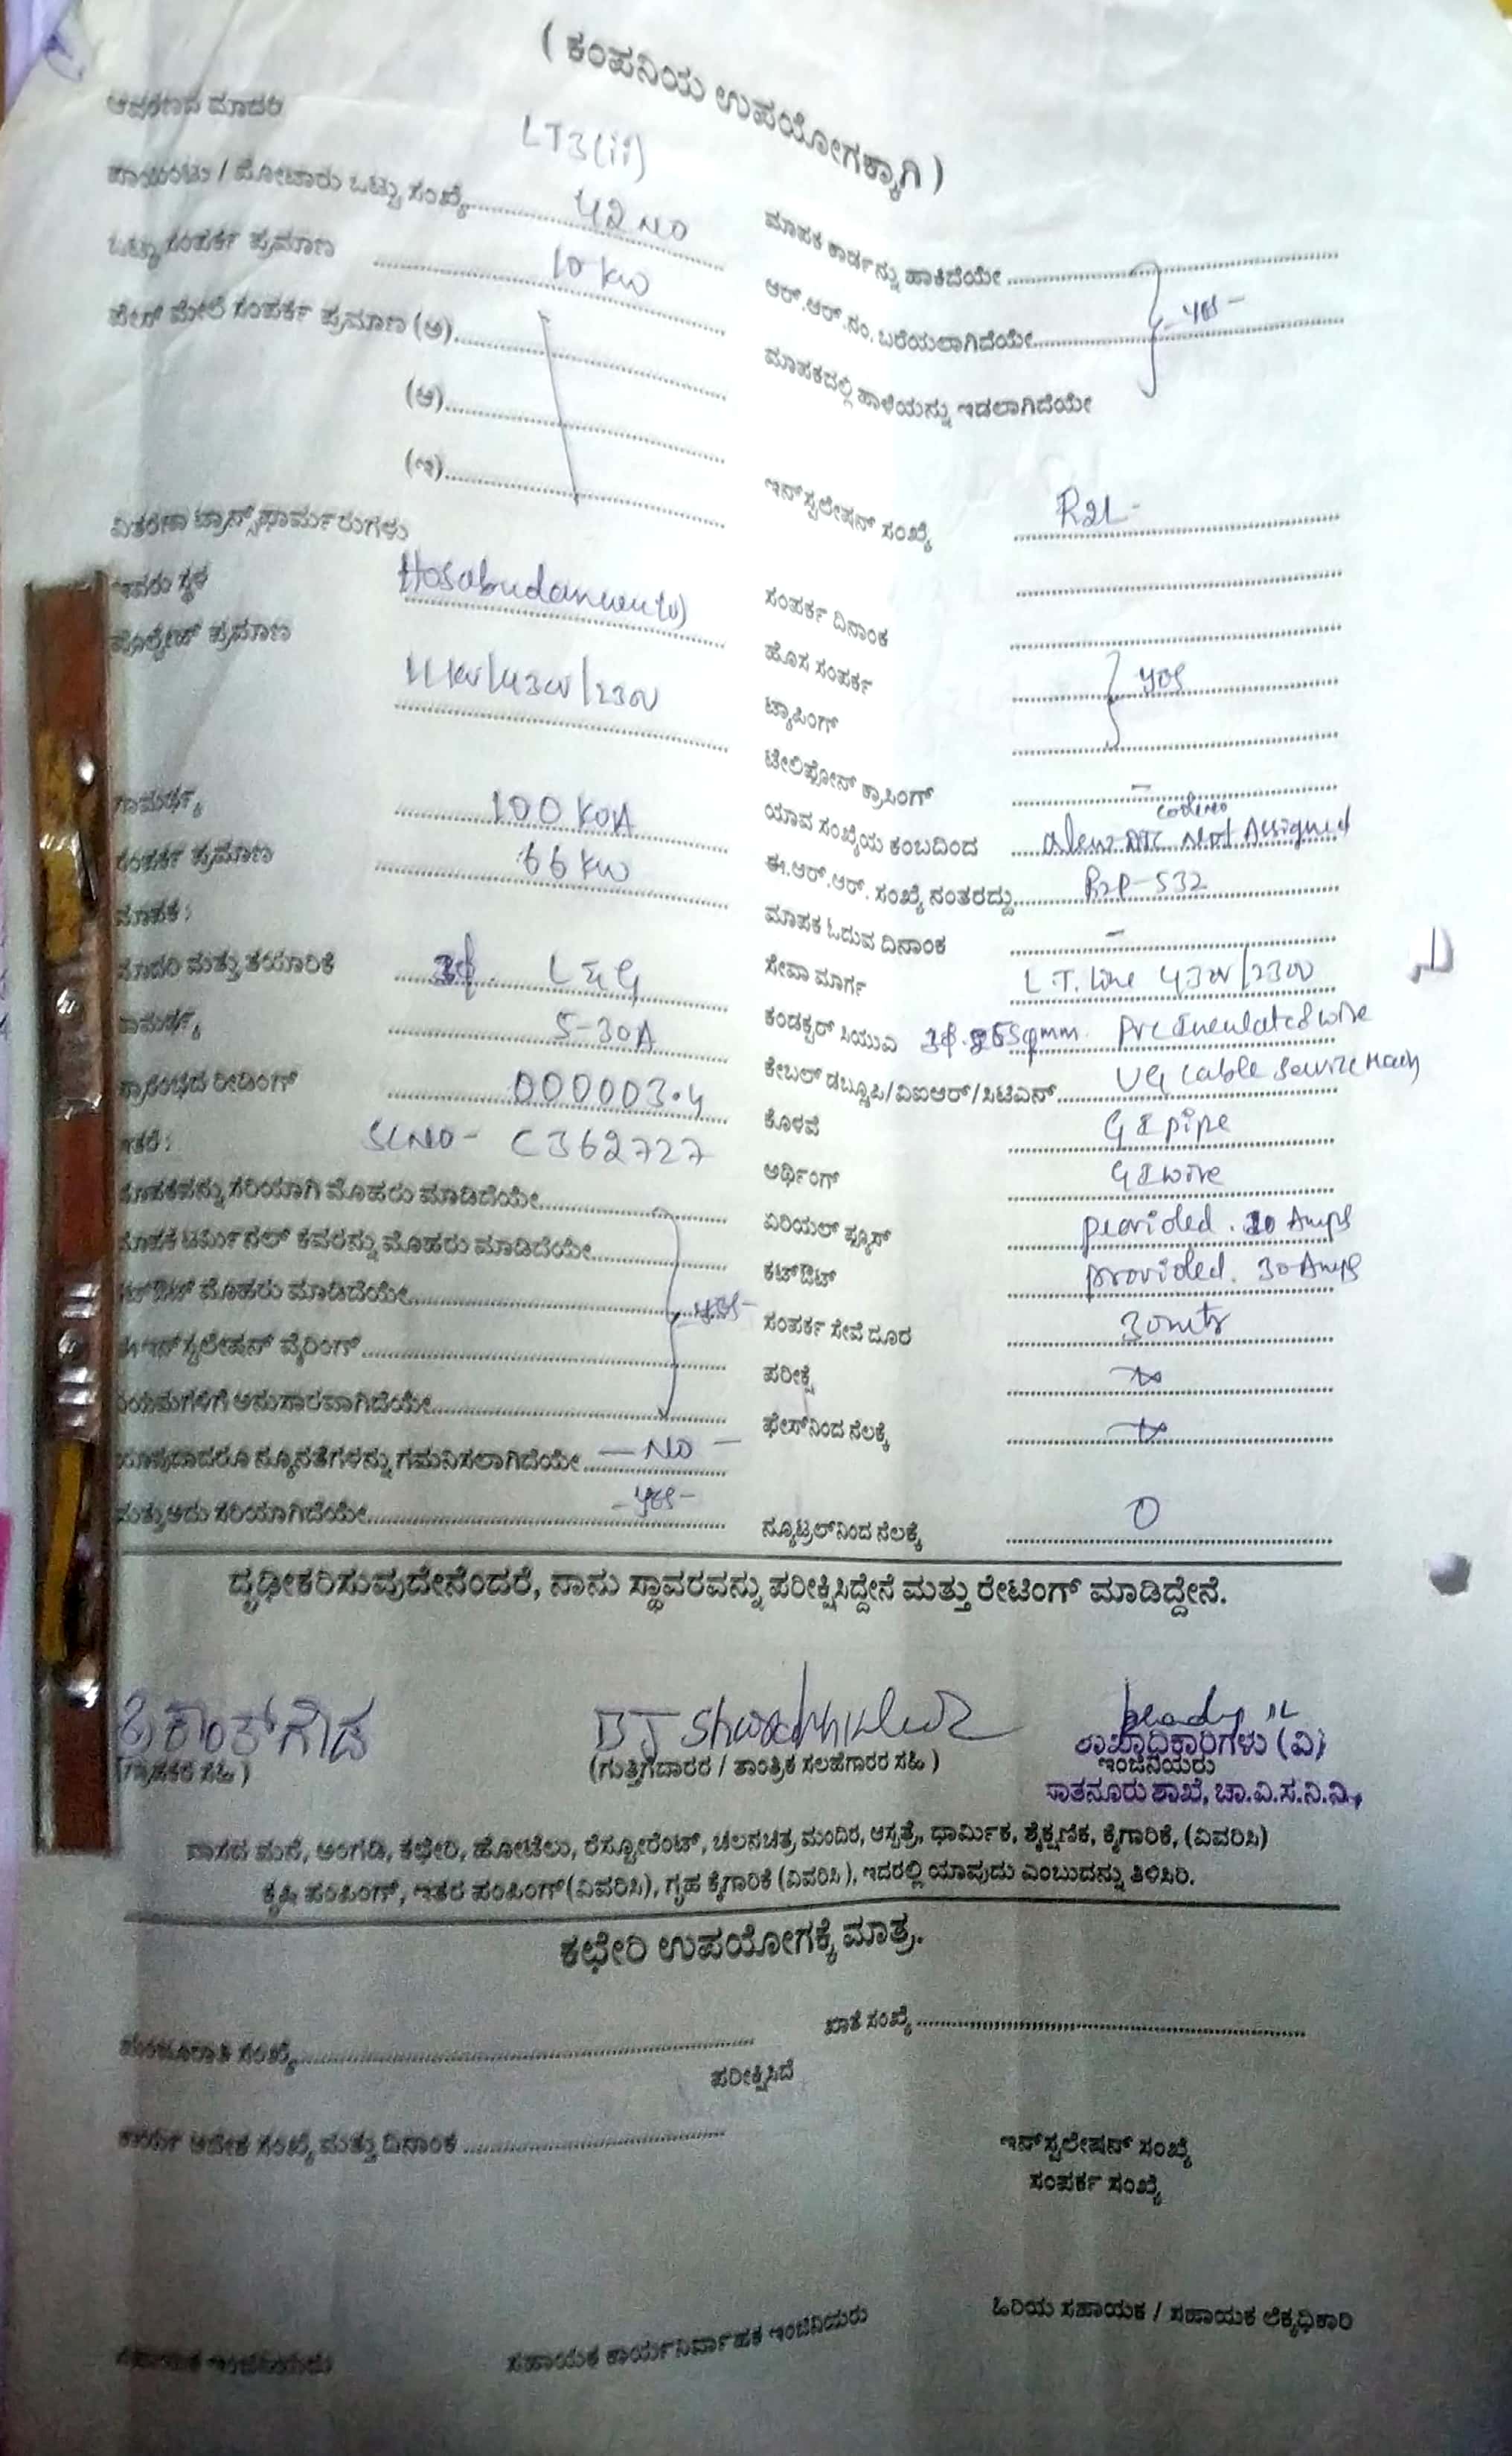 ( ಕಂಪನಿಯ ಉಪಯೋಗಕ್ಕಾಗಿ )
ಆವರಣದ ಮಾದರಿ LT3(ii)
ಪಾಯಿಂಟು / ಮೋಟಾರು ಒಟ್ಟು ಸಂಖ್ಯೆ 42 NO
ಒಟ್ಟು ಸಂಪರ್ಕ ಪ್ರಮಾಣ 10 KW
ಫೇಸ್ ಮೇಲೆ ಸಂಪರ್ಕ ಪ್ರಮಾಣ (ಅ)
(ಆ)
(ಇ)
ವಿತರಣಾ ಟ್ರಾನ್ಸ್‌ಫಾರ್ಮರುಗಳು
ಇವರು ಸ್ಥಳ
ವೋಲ್ಟೇಜ್ ಪ್ರಮಾಣ 11KV/430V/230V
ಸಾಮರ್ಥ್ಯ 100 KVA
ಸಂಪರ್ಕ ಪ್ರಮಾಣ 66 KW
ಮಾಪಕ :
ಮಾದರಿ ಮತ್ತು ತಯಾರಿಕೆ 3ϕ. L&G
ಸಾಮರ್ಥ್ಯ 5-30A
ಪ್ರಾರಂಭದ ರೀಡಿಂಗ್ 000003.4
ಇತರೆ : SLNO- C362727
ಮಾಪಕವನ್ನು ಸರಿಯಾಗಿ ಮೊಹರು ಮಾಡಿದೆಯೇ
ಮಾಪಕ ಟರ್ಮಿನಲ್ ಕವರನ್ನು ಮೊಹರು ಮಾಡಿದೆಯೇ
ಕಟ್‌ಔಟ್ ಮೊಹರು ಮಾಡಿದೆಯೇ -yes-
ಈ ಇನ್‌ಸ್ಟಲೇಷನ್ ವೈರಿಂಗ್
ನಿಯಮಗಳಿಗೆ ಅನುಸಾರವಾಗಿದೆಯೇ
ಯಾವುದಾದರೂ ನ್ಯೂನತೆಗಳನ್ನು ಗಮನಿಸಲಾಗಿದೆಯೇ - NO -
ಮತ್ತು ಅದು ಸರಿಯಾಗಿದೆಯೇ -yes-
ಮಾಪಕ ಕಾರ್ಡನ್ನು ಹಾಕಿದೆಯೇ
ಆರ್.ಆರ್.ನಂ. ಬರೆಯಲಾಗಿದೆಯೇ -yes-
ಮಾಪಕದಲ್ಲಿ ಹಾಳೆಯನ್ನು ಇಡಲಾಗಿದೆಯೇ
ಇನ್‌ಸ್ಟಲೇಷನ್ ಸಂಖ್ಯೆ
ಸಂಪರ್ಕ ದಿನಾಂಕ
ಹೊಸ ಸಂಪರ್ಕ yes
ಟ್ಯಾಪಿಂಗ್
ಟೆಲಿಫೋನ್ ಕ್ರಾಸಿಂಗ್ -
ಯಾವ ಸಂಖ್ಯೆಯ ಕಂಬದಿಂದ Not Assigned
ಈ.ಆರ್.ಆರ್. ಸಂಖ್ಯೆ ನಂತರದ್ದು
ಮಾಪಕ ಓದುವ ದಿನಾಂಕ -
ಸೇವಾ ಮಾರ್ಗ L.T. Line 430V/230V
ಕಂಡಕ್ಟರ್ ಸಿಯುಎ
ಕೇಬಲ್ ಡಬ್ಲ್ಯೂಪಿ/ವಿಐಆರ್/ಸಿಟಿಎನ್ UG Cable
ಕೊಳವೆ GI pipe
ಅರ್ಥಿಂಗ್ GI wire
ಏರಿಯಲ್ ಫ್ಯೂಸ್ provided. Amps
ಕಟ್‌ಔಟ್ provided. 30 Amps
ಸಂಪರ್ಕ ಸೇವೆ ದೂರ 30mts
ಪರೀಕ್ಷೆ
ಫೇಸ್‌ನಿಂದ ನೆಲಕ್ಕೆ
ನ್ಯೂಟ್ರಲ್‌ನಿಂದ ನೆಲಕ್ಕೆ 0
ದೃಢೀಕರಿಸುವುದೇನೆಂದರೆ, ನಾನು ಸ್ಥಾವರವನ್ನು ಪರೀಕ್ಷಿಸಿದ್ದೇನೆ ಮತ್ತು ರೇಟಿಂಗ್ ಮಾಡಿದ್ದೇನೆ.
(ಗ್ರಾಹಕರ ಸಹಿ)
(ಗುತ್ತಿಗೆದಾರರ / ತಾಂತ್ರಿಕ ಸಲಹೆಗಾರರ ಸಹಿ )
ಶಾಖಾಧಿಕಾರಿಗಳು (ವಿ)
ಇಂಜಿನಿಯರು
ಸಾತನೂರು ಶಾಖೆ, ಚಾ.ವಿ.ಸ.ನಿ.ನಿ.,
ವಾಸದ ಮನೆ, ಅಂಗಡಿ, ಕಛೇರಿ, ಹೋಟೆಲು, ರೆಸ್ಟೋರೆಂಟ್, ಚಲನಚಿತ್ರ ಮಂದಿರ, ಆಸ್ಪತ್ರೆ, ಧಾರ್ಮಿಕ, ಶೈಕ್ಷಣಿಕ, ಕೈಗಾರಿಕೆ, (ವಿವರಿಸಿ)
ಕೃಷಿ ಪಂಪಿಂಗ್, ಇತರ ಪಂಪಿಂಗ್ (ವಿವರಿಸಿ), ಗೃಹ ಕೈಗಾರಿಕೆ (ವಿವರಿಸಿ), ಇದರಲ್ಲಿ ಯಾವುದು ಎಂಬುದನ್ನು ತಿಳಿಸಿರಿ.
ಕಛೇರಿ ಉಪಯೋಗಕ್ಕೆ ಮಾತ್ರ.
ಮಂಜೂರಾತಿ ಸಂಖ್ಯೆ
ಖಾತೆ ಸಂಖ್ಯೆ
ಪರೀಕ್ಷಿಸಿದೆ
ಕಾರ್ಯ ಆದೇಶ ಸಂಖ್ಯೆ ಮತ್ತು ದಿನಾಂಕ
ಇನ್‌ಸ್ಟಲೇಷನ್ ಸಂಖ್ಯೆ
ಸಂಪರ್ಕ ಸಂಖ್ಯೆ
ಸಹಾಯಕ ಇಂಜಿನಿಯರು
ಸಹಾಯಕ ಕಾರ್ಯನಿರ್ವಾಹಕ ಇಂಜಿನಿಯರು
ಹಿರಿಯ ಸಹಾಯಕ / ಸಹಾಯಕ ಲೆಕ್ಕಾಧಿಕಾರಿ